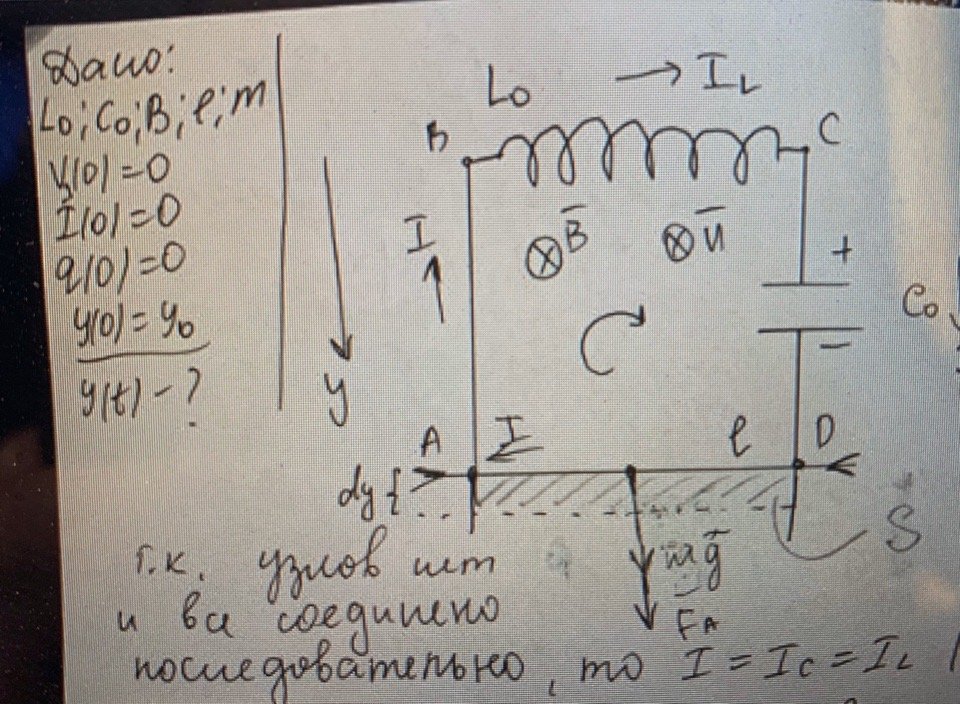 Дано:
L₀; C₀; B; ℓ; m
V(0)=0
I(0)=0
q(0)=0
y(0)=y₀
y(t)-?
y
L₀ → I_L
B
C
I
B̄
n̄
+
C₀
−
A
I
ℓ
D
dy{
S
mg̅
F̅_A
т.к. узлов нет
и все соединено
последовательно, то I = I_C = I_L